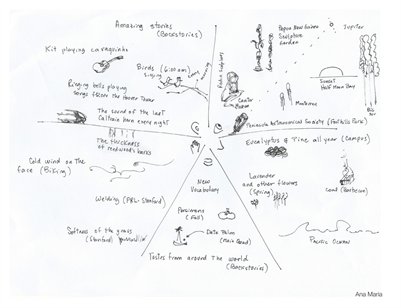 Amazing stories
(Backstories)
Kit playing caraquinho
Birds (6:00am)
Singing
every morning
Ringing bells playing
songs from the Hoover Tower
The sound of the last
Caltrain horn every night
Rodin Sculptures
Cantor
Museum
Papua New Guinea
Sculpture
Garden
Jupiter
Sunset
Half Moon Bay
Monterey
Big Sur
Peninsula Astronomical Society (Foothills Park)
The thickness
of redwood's barks
Cold wind on the
face (Biking)
Welding (PRL-Stanford)
Softness of the grass
(Stanford)
New
Vocabulary
Persimmons
(Fall)
Date Palm
(Main Quad)
Tastes from around the world
(Backstories)
Eucalyptus & Pine all year (Campus)
Lavender
and other flowers
(Spring)
Coal (Barbecue)
Pacific Ocean
Ana Maria